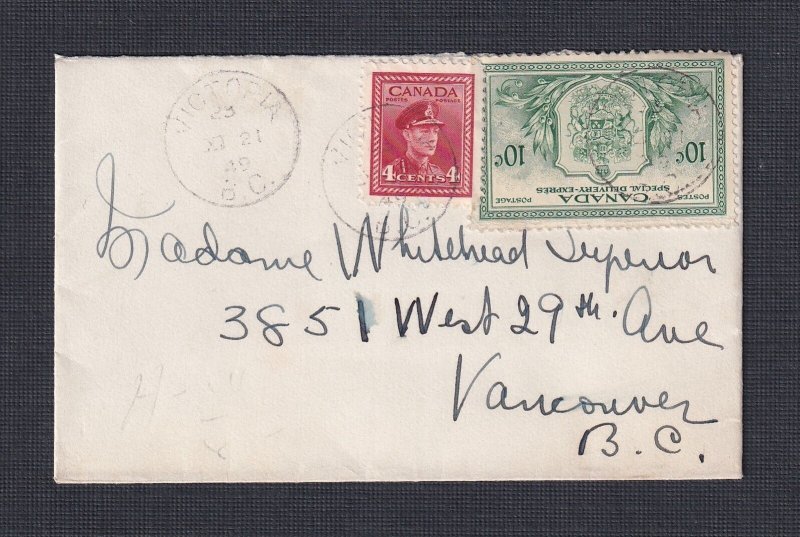 VICTORIA
23
OT 21
49
B.C.
CANADA
POSTES POSTAGE
4 CENTS 4
10c 10c
CANADA
SPECIAL DELIVERY-EXPRÈS
POSTES POSTAGE
Madame Whitehead Superior
3851 West 29th Ave
Vancouver
B.C.